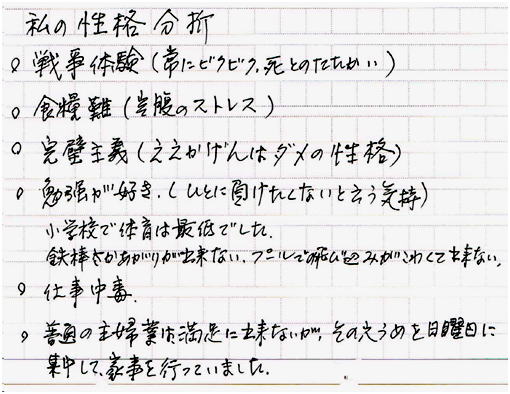 私の性格分析
○ 戦争体験(常にビクビク、死とのたたかい)
○ 食糧難(空腹のストレス)
○ 完璧主義(ええかげんはダメの性格)
○ 勉強が好き、(ひとに負けたくないと云う気持)
小学校で体育は最低でした。
鉄棒さかあがりが出来ない、プールでの飛び込みがこわくて出来ない。
○ 仕事中毒。
○ 普通の主婦業は満足に出来ないが、その穴うめを日曜日に
集中して、家事を行っていました。